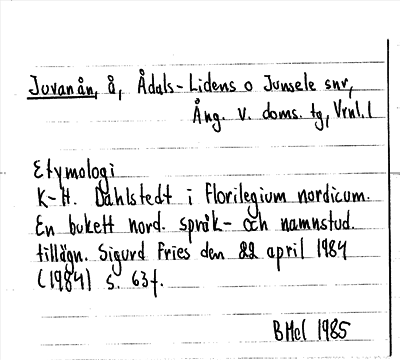 Juvanån, å, Ådals-Lidens o Junsele snr,
Ång. v. doms. tg, Vrnl. l
Etymologi
K-H. Dahlstedt i Florilegium nordicum.
En bukett nord. språk- och namnstud.
tillägn. Sigurd Fries den 22 april 1984
(1984) s. 63f.
BHel 1985